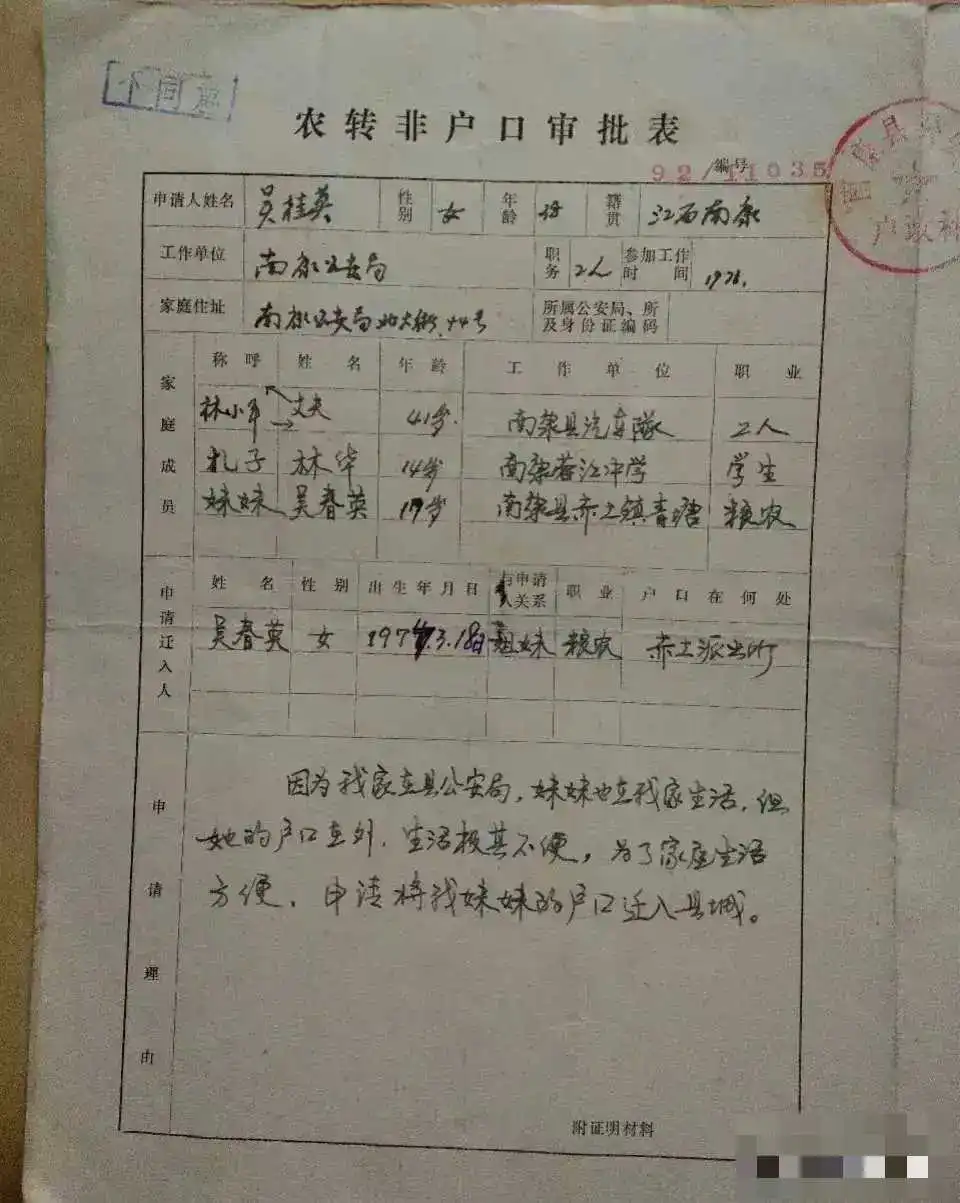 不同意
农转非户口审批表
编号
92/11035
户政科
申请人姓名 吴桂英 性别 女 年龄 籍贯 江西南康
工作单位 南康公安局 职务 工人 参加工作时间 1976.
家庭住址 南康公安局北大街44号 所属公安局、所及身份证编码
家庭成员 称呼 姓名 年龄 工作单位 职业
林小平 丈夫 41岁. 南康县汽车队 工人
儿子 林华 14岁 南康蓉江中学 学生
妹妹 吴春英 17岁 南康县赤土镇青塘 粮农
申请迁入人 姓名 性别 出生年月日 与申请人关系 职业 户口在何处
吴春英 女 1974.3.18日 姐妹 粮农 赤土派出所
申请理由
因为我家在县公安局,妹妹也在我家生活,但
她的户口在外,生活极其不便,为了家庭生活
方便,申请将我妹妹的户口迁入县城。
附证明材料